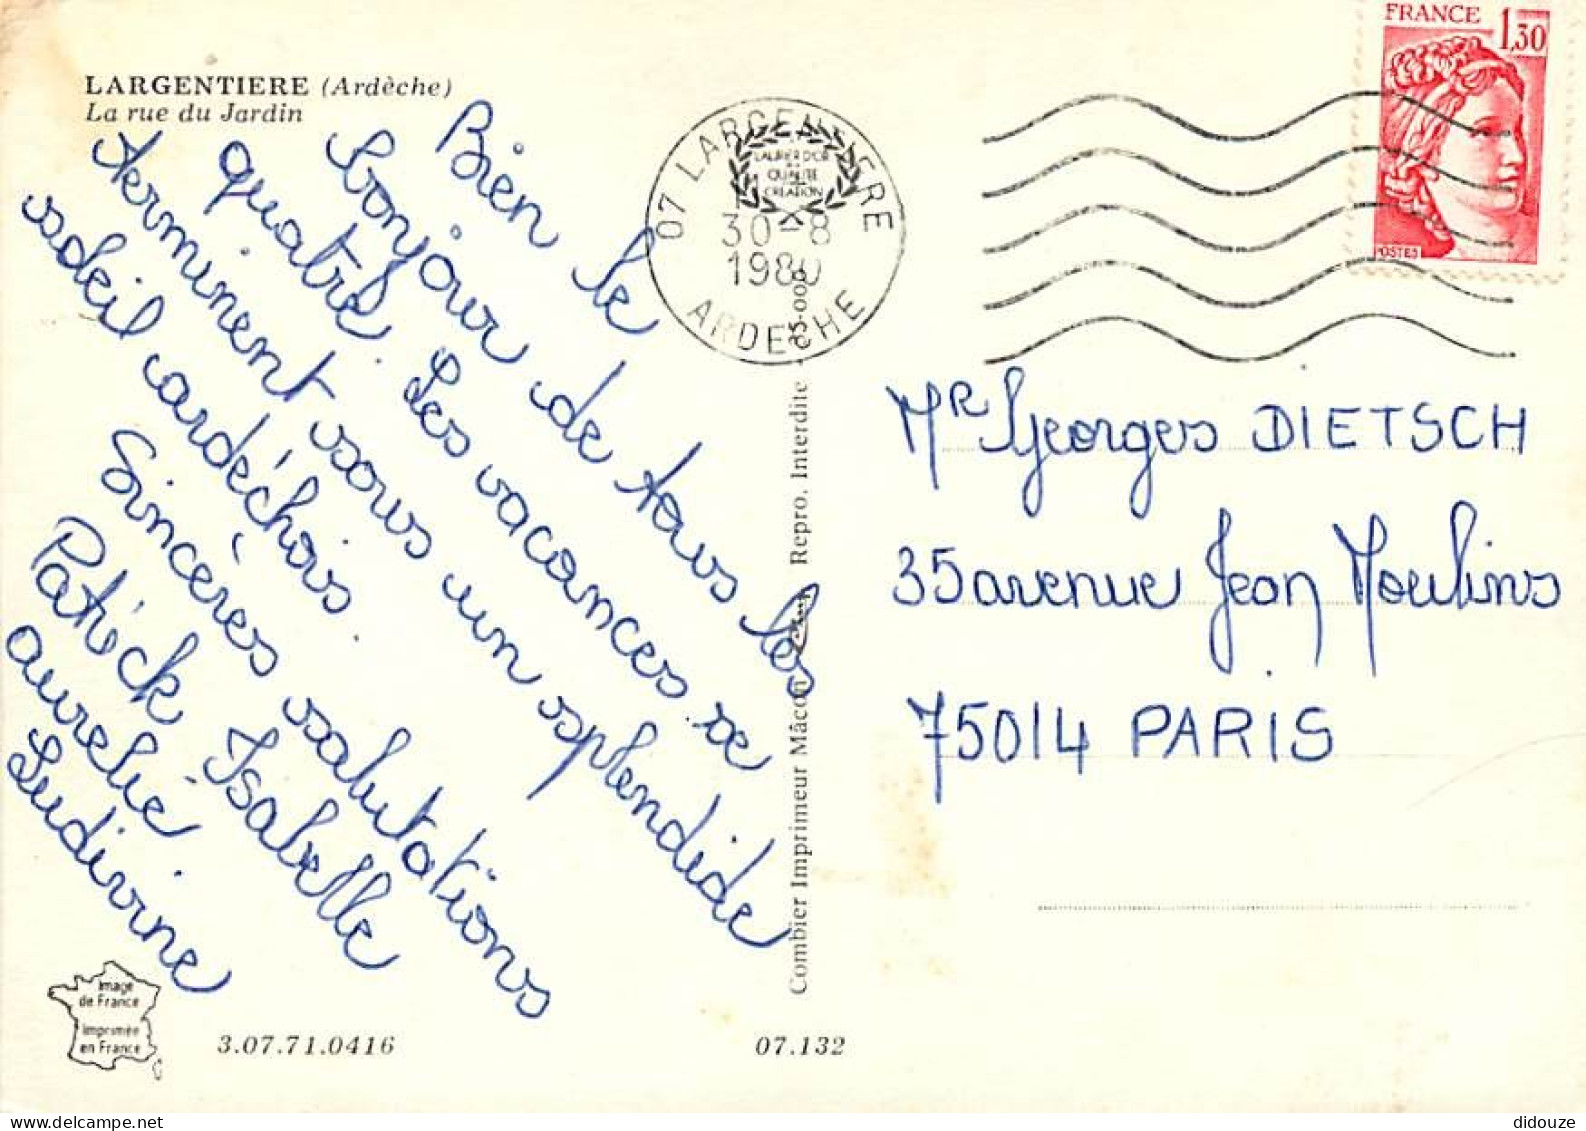 LARGENTIERE (Ardèche)
La rue du Jardin
Bien le
bonjour de tous les
quatre. Les vacances se
terminent sous un splendide
soleil ardéchois.
Sincères salutations
Patrick Isabelle
Aurélie
Ludivine
Image
de France
Imprimée
en France
3.07.71.0416
07.132
Combier Imprimeur Mâcon
Repro. Interdite
07 LARGENTIERE
LAURIER D'OR
QUALITÉ
CREATION
30-8
1980
ARDECHE
FRANCE
1,30
POSTES
Mr Georges DIETSCH
35 avenue Jean Moulins
75014 PARIS
didouze